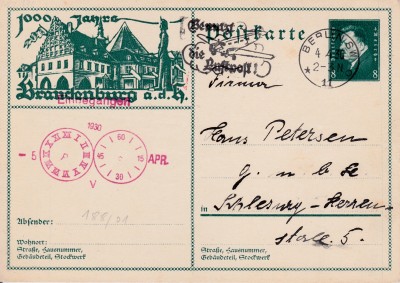 1000 Jahre
Brandenburg a.d.H.
Eingegangen
Postkarte
Benutzt
die
Luftpost!
BERLIN
8 8
Firma
Hans Petersen
G. m. b. H.
in Schleswig-Herren-
stall 5.
1930
60
- 5 45 15 APR.
30
V
Absender: 188/31
Wohnort:
Straße, Hausnummer,
Gebäudeteil, Stockwerk
Straße, Hausnummer,
Gebäudeteil, Stockwerk